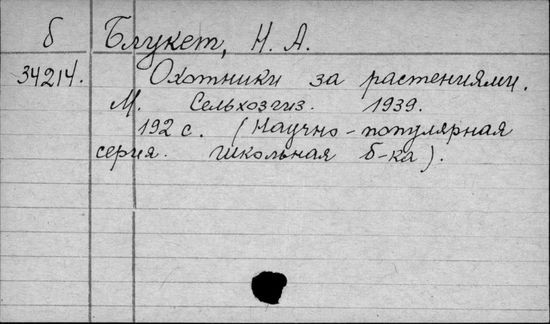 б Блукет, Н. А.
34214. Охотники за растениями.
М. Сельхозгиз. 1939.
192 с. (Научно-популярная
серия. Школьная б-ка).